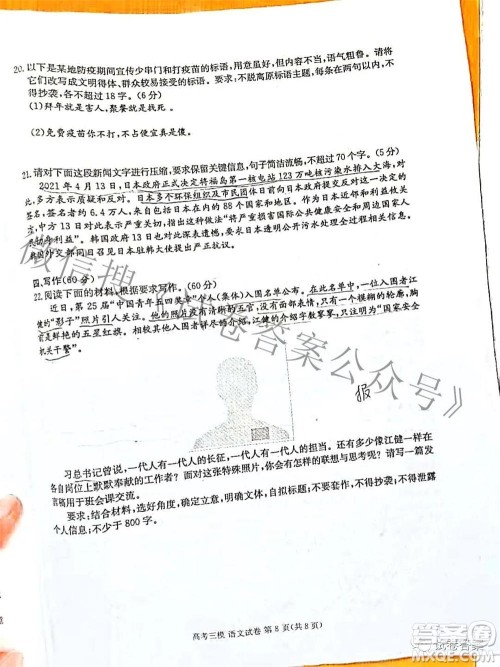 20. 以下是某地防疫期间宣传少串门和打疫苗的标语,用意虽好,但内容不当,语气粗鲁。请将
它们改写成文明得体、群众较易接受的标语。要求:不脱离原标语主题,每条均不
得抄袭,各不超过 18 字。(6 分)
(1)拜年就是害人,聚餐就是找死。
(2)免费疫苗你不打,不占便宜真是傻。
21. 请对下面这段新闻文字进行压缩,要求保留关键信息,句子简洁流畅,不超过 70 个字。(5分)
2021 年 4 月 13 日,日本政府正式决定将福岛第一核电站 123 万吨核污染水排入大海,对
此,多方表示强烈反对。日本多个环保组织及市民团体日前向日本政府提交了反对签名,
签名者约 6.4 万人,其中有来自日本的 88 个国家的民众。
中方 13 日对此表示严重关切,指出日本此举“将严重损害国际公共健康安全和周边国家人
民切身利益”。韩国政府 13 日采取了应对措施,要求日本透明公开污水处理全过程
韩国外交部同日召见日本驻韩大使提出严正抗议。
四、写作(60 分)
22. 阅读下面的材料,根据要求写作。(60 分)
近日,第 25 届“中国青年五四奖章”个人(集体)入围名单公布。在上万入围者中,江
健的“影子”照片引人关注。他的照片没有清晰的三官,没有面部表情,只有一个模糊的轮廓,胸
前佩戴着鲜艳的五星红旗。相较于其他入围者详尽的介绍,江健的介绍寥寥数字,只注明为“国家安全
机关干警”。
报
习总书记曾说,一代人有一代人的长征,一代人有一代人的担当。还有多少像江健一样在
各自岗位上默默奉献的工作者?面对这张特殊照片,你会有怎样的联想与思考呢?请写一篇
发言稿用于班会课交流。
要求:结合材料,选好角度,确定立意,明确文体,自拟标题;不要套作,不得抄袭,不得泄露
个人信息;不少于 800 字。
高考三模 语文试卷 第 8 页(共 8 页)
微信搜《试卷答案公众号》
试卷答案